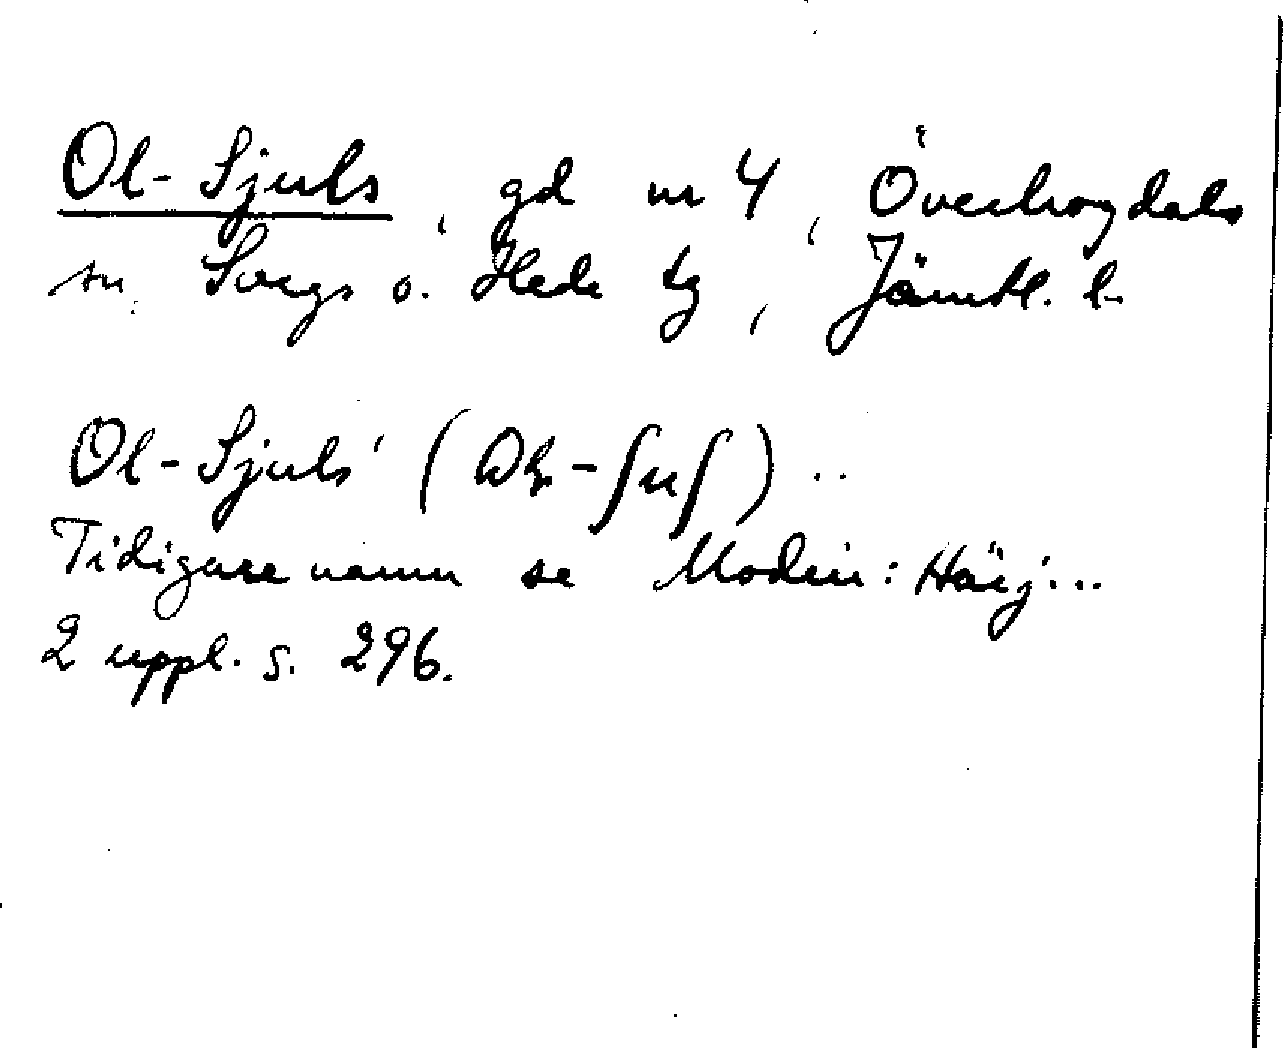 Ol-Sjuls, gd nr 4, Överhogdals
sn. Svegs o. Hede tg, Jämtl. l.
Ol-Sjuls' ( -ʃuʃ) ..
Tidigare namn se Modin: Härj...
2 uppl. s. 296.